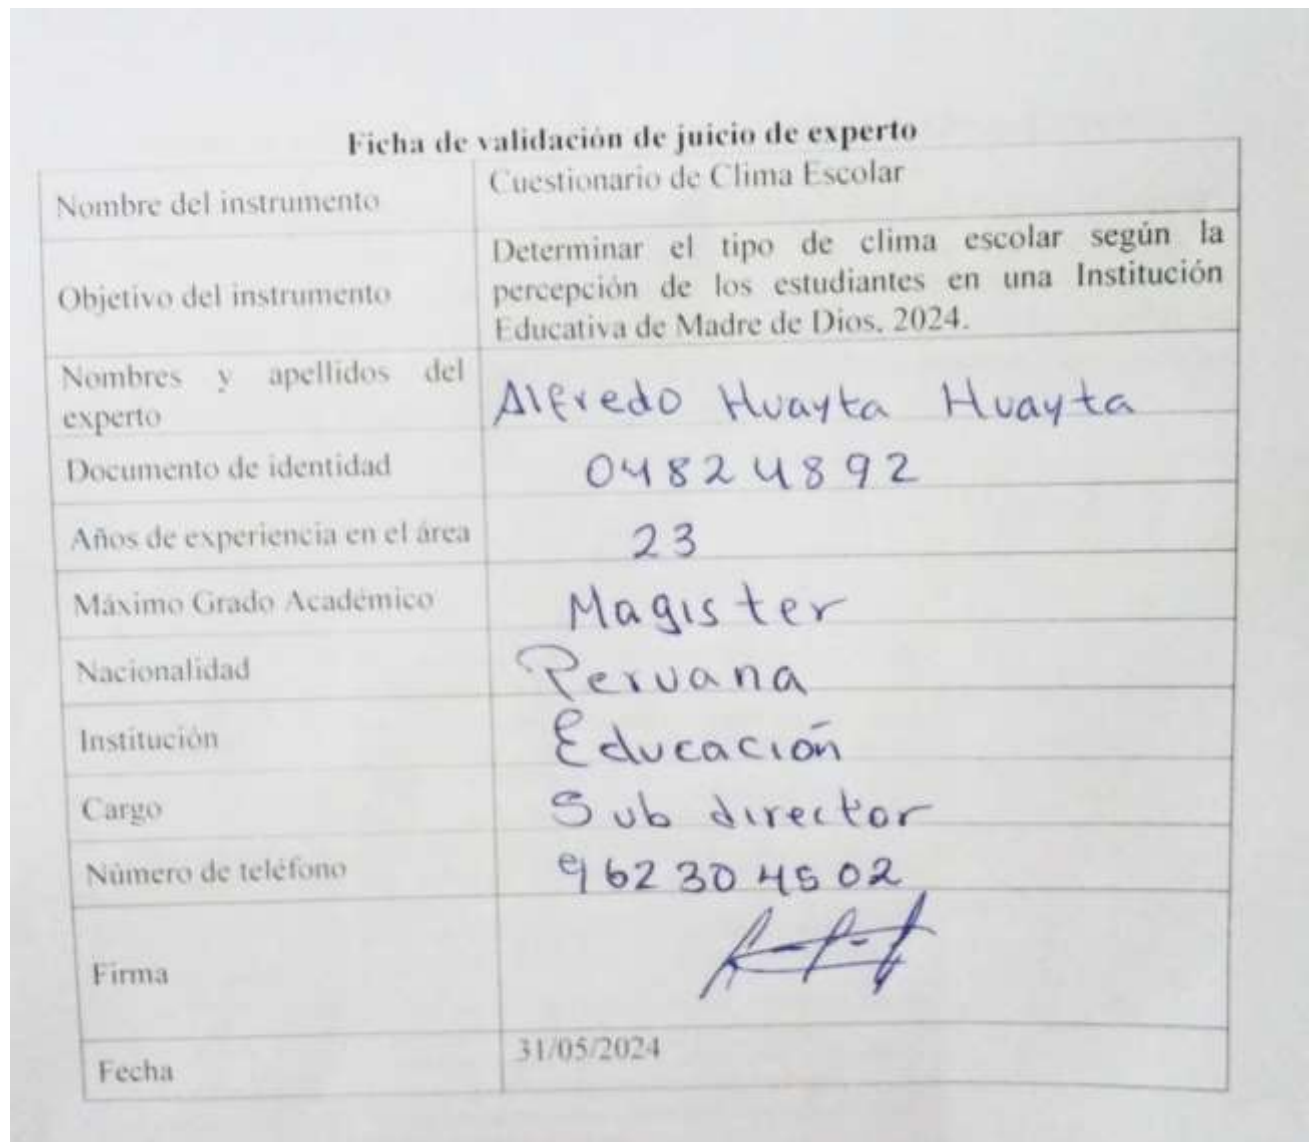 Ficha de validación de juicio de experto
Nombre del instrumento
Cuestionario de Clima Escolar
Objetivo del instrumento
Determinar el tipo de clima escolar según la
percepción de los estudiantes en una Institución
Educativa de Madre de Dios, 2024.
Nombres y apellidos del
experto
Alfredo Huayta Huayta
Documento de identidad
04824892
Años de experiencia en el área
23
Máximo Grado Académico
Magister
Nacionalidad
Peruana
Institución
Educación
Cargo
Sub director
Número de teléfono
962304502
Firma
Fecha
31/05/2024